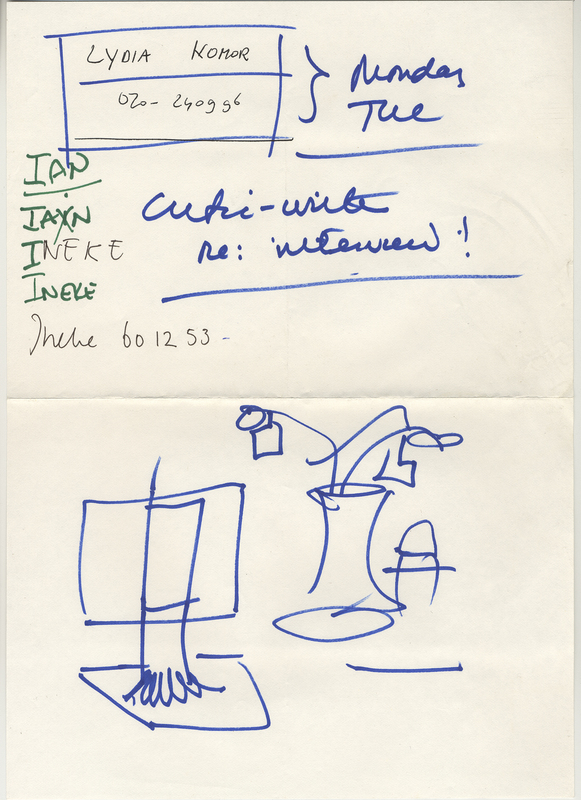 LYDIA KOMOR
020- 240996
Monday
TUE
IAN
IAXN
INEKE
INEKE
Ineke 601253 -
re: interview!